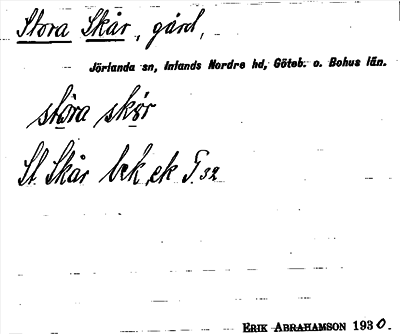 Stora Skår, gård,
Jörlanda sn, Inlands Nordre hd, Göteb. o. Bohus län.
stòra skọr
St. Skår bek. ek
ERIK ABRAHAMSON 1930.